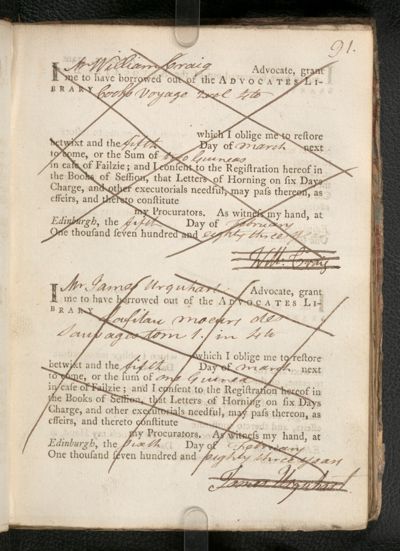 91.
I Mr William Craig Advocate, grant
me to have borrowed out of the ADVOCATES LI-
BRARY Cooks Voyage 4to
which I oblige me to reſtore
betwixt and the fifth Day of march next
to come, or the Sum of two Guineas
in caſe of Failzie; and I conſent to the Regiſtration hereof in
the Books of Seſſion, that Letters of Horning on ſix Days
Charge, and other executorials needful, may paſs thereon, as
effeirs, and thereto conſtitute
my Procurators. As witneſs my hand, at
Edinburgh, the fifth Day of february
One thouſand ſeven hundred and eighty three
Will. Craig
I Mr James Urquhart Advocate, grant
me to have borrowed out of the ADVOCATES LI-
BRARY Lafitau moeurs des
Sauvages tom 1. in 4to
which I oblige me to reſtore
betwixt and the fifth Day of march next
to come, or the ſum of one Guinea
in caſe of Failzie; and I conſent to the Regiſtration hereof in
the Books of Seſſion, that Letters of Horning on ſix Days
Charge, and other executorials needful, may paſs thereon, as
effeirs, and thereto conſtitute
my Procurators. As witneſs my hand, at
Edinburgh, the sixth Day of february
One thouſand ſeven hundred and eighty three years
James Urquhart